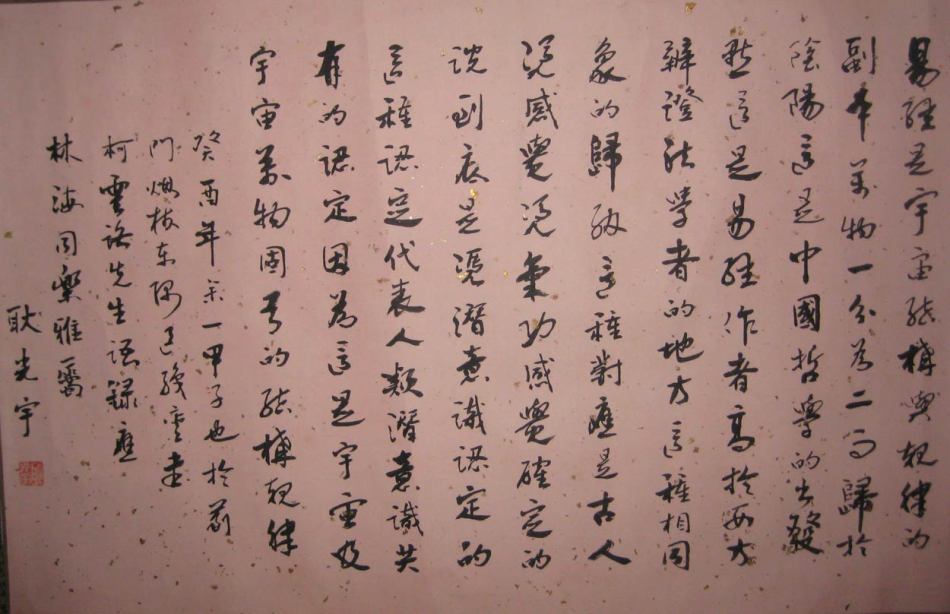 易經是宇宙結構與規律的
副本萬物一分為二而歸於
陰陽這是中國哲學的出發
點這是易經作者高於西方
辯證法學者的地方這種相同
象的歸納這種對應是古人
憑感覺憑氣功感覺確定的
說到底是憑潛意識認定的
這種認定代表人類潛意識共
有的認定因為這是宇宙及
宇宙萬物固有的結構規律
癸酉年余一甲子也於前
門烟枝東隅
柯雲路先生語錄應
林海同樂雅屬
耿光宇